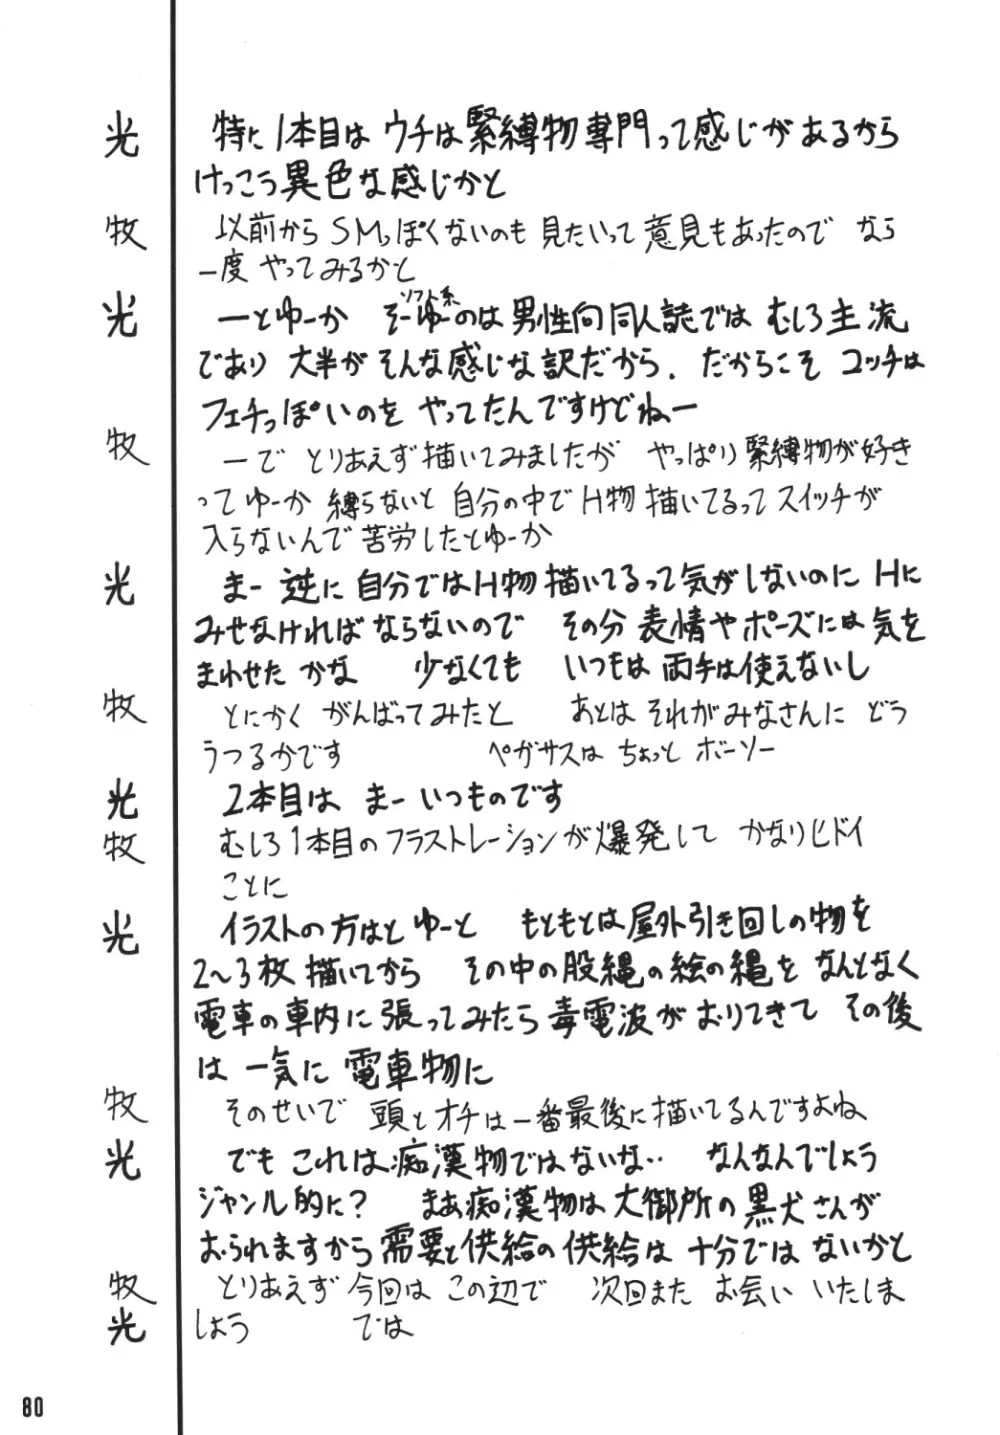 光 特に1本目は ウチは緊縛物専門って感じがあるから
けっこう異色な感じかと
牧 以前からSMっぽくないのも 見たいって意見もあったので なら
一度 やってみるかと
光 ーとゆーか そーゆーのは男性向同人誌では むしろ主流
ソフト系
であり 大半が そんな感じな訳だから. だからこそ コッチは
フェチっぽいのを やってたんですけどねー
牧 ーで とりあえず描いてみましたが やっぱり緊縛物が好き
ってゆーか 縛らないと 自分の中でH物描いてるってスイッチが
入らないんで苦労したとゆーか
光 まー 逆に 自分ではH物描いてるって気がしないのに Hに
みせなければならないので その分 表情やポーズには気を
まわせた かな 少なくても いつもは両手は使えないし
牧 とにかく がんばってみたと あとは それがみなさんに どう
うつるかです ペガサスは ちょっと ボーソー
光 2本目は まー いつものです
牧 むしろ1本目のフラストレーションが爆発して かなりヒドイ
ことに
光 イラストの方はと ゆーと もともとは屋外引き回しの物を
2〜3枚 描いてから その中の股縄の絵の縄を なんとなく
電車の車内に張ってみたら毒電波がおりてきて その後
は 一気に 電車物に
牧 そのせいで 頭とオチは一番最後に描いてるんですよね
光 でも これは痴漢物ではないな‥ なんなんでしょう
ジャンル的に? まあ痴漢物は大御所の黒犬さんが
おられますから需要と供給の供給は 十分では ないかと
牧 とりあえず 今回は この辺で 次回また お会い いたしま
光 しょう では
80